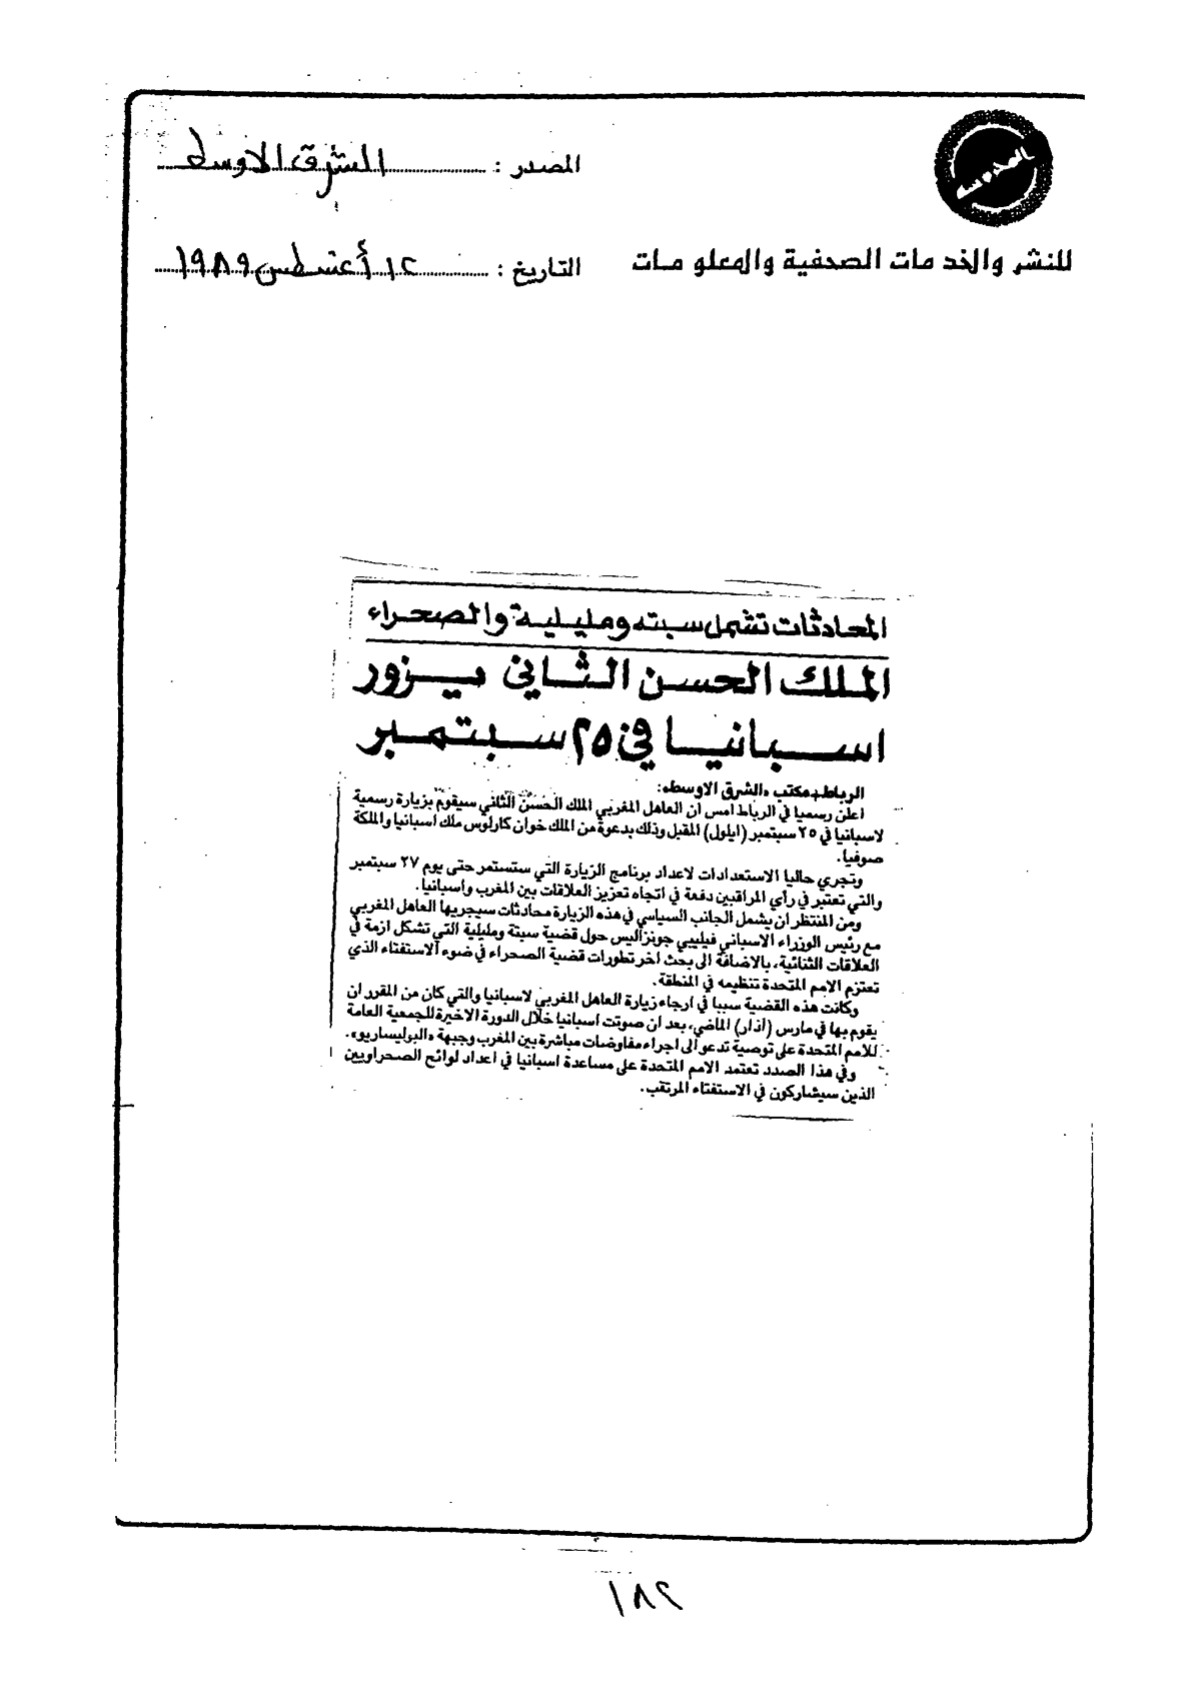 المصدر : الشرق الاوسط
للنشر والخدمات الصحفية والمعلومات
التاريخ : ١٢ أغسطس ١٩٨٩
المحادثات تشمل سبته ومليلية والصحراء
الملك الحسن الثاني يزور
اسبانيا في ٢٥ سبتمبر
الرباط ـ مكتب «الشرق الاوسط»:
اعلن رسميا في الرباط امس ان العاهل المغربي الملك الحسن الثاني سيقوم بزيارة رسمية
لاسبانيا في ٢٥ سبتمبر (ايلول) المقبل وذلك بدعوة من الملك خوان كارلوس ملك اسبانيا والملكة
صوفيا.
وتجري حاليا الاستعدادات لاعداد برنامج الزيارة التي ستستمر حتى يوم ٢٧ سبتمبر
والتي تعتبر في رأي المراقبين دفعة في اتجاه تعزيز العلاقات بين المغرب واسبانيا.
ومن المنتظر ان يشمل الجانب السياسي في هذه الزيارة محادثات سيجريها العاهل المغربي
مع رئيس الوزراء الاسباني فيليبي جونزاليس حول قضية سبتة ومليلية التي تشكل ازمة في
العلاقات الثنائية، بالاضافة الى بحث اخر تطورات قضية الصحراء في ضوء الاستفتاء الذي
تعتزم الامم المتحدة تنظيمه في المنطقة.
وكانت هذه القضية سببا في ارجاء زيارة العاهل المغربي لاسبانيا والتي كان من المقرر ان
يقوم بها في مارس (اذار) الماضي، بعد ان صوتت اسبانيا خلال الدورة الاخيرة للجمعية العامة
للامم المتحدة على توصية تدعو الى اجراء مفاوضات مباشرة بين المغرب وجبهة «البوليساريو».
وفي هذا الصدد تعتمد الامم المتحدة على مساعدة اسبانيا في اعداد لوائح الصحراويين
الذين سيشاركون في الاستفتاء المرتقب.
١٨٢